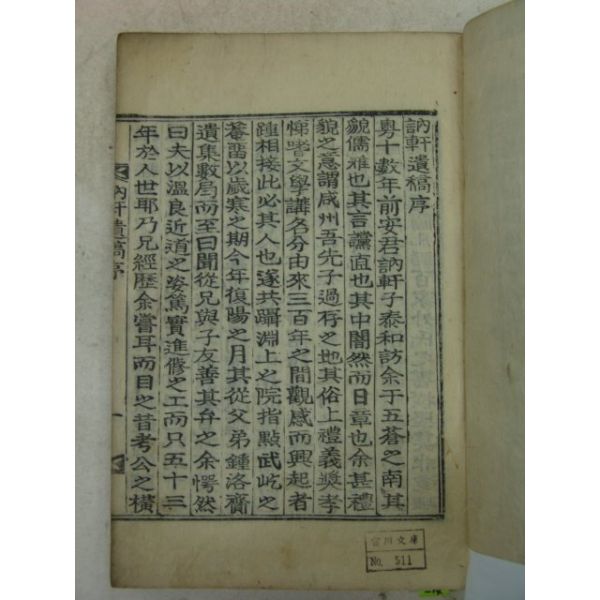 訥軒遺稿序
粤十數年前安君訥軒子泰和訪余于五蒼之南其
貌儒雅也其言讜直也其中闇然而日章也余甚禮
貌之意謂咸州吾先子過存之地其俗上禮義奬孝
悌嗜文學講名分由來三百年之間觀感而興起者
踵相接此必其人也遂共躡淵上之院指點武屹之
蓄畱以歲寒之期今年復陽之月其從父弟鍾洛齎
遺集數局而至曰聞從兄與子友善其弁之余愕然
曰夫以溫良近道之姿篤實進修之工而只五十三
年於人世耶乃兄經歷余嘗耳而目之昔考公之橫
訥軒遺稿序
一
文庫
No. 511